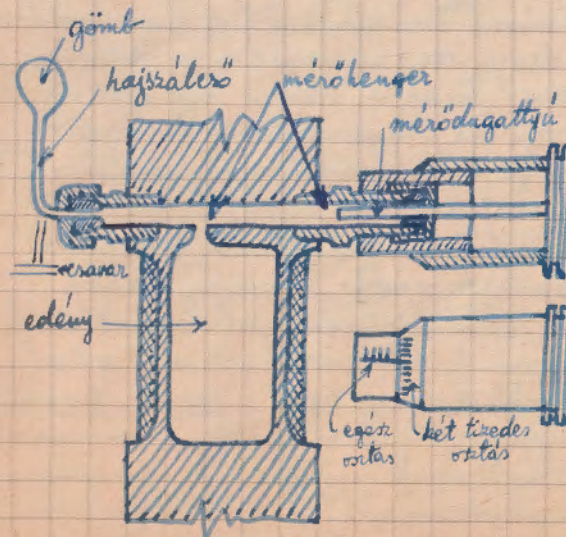 gömb
hajszálcső
mérőhenger
mérődugattyú
csavar
edény
egész
osztás
két tizedes
osztás